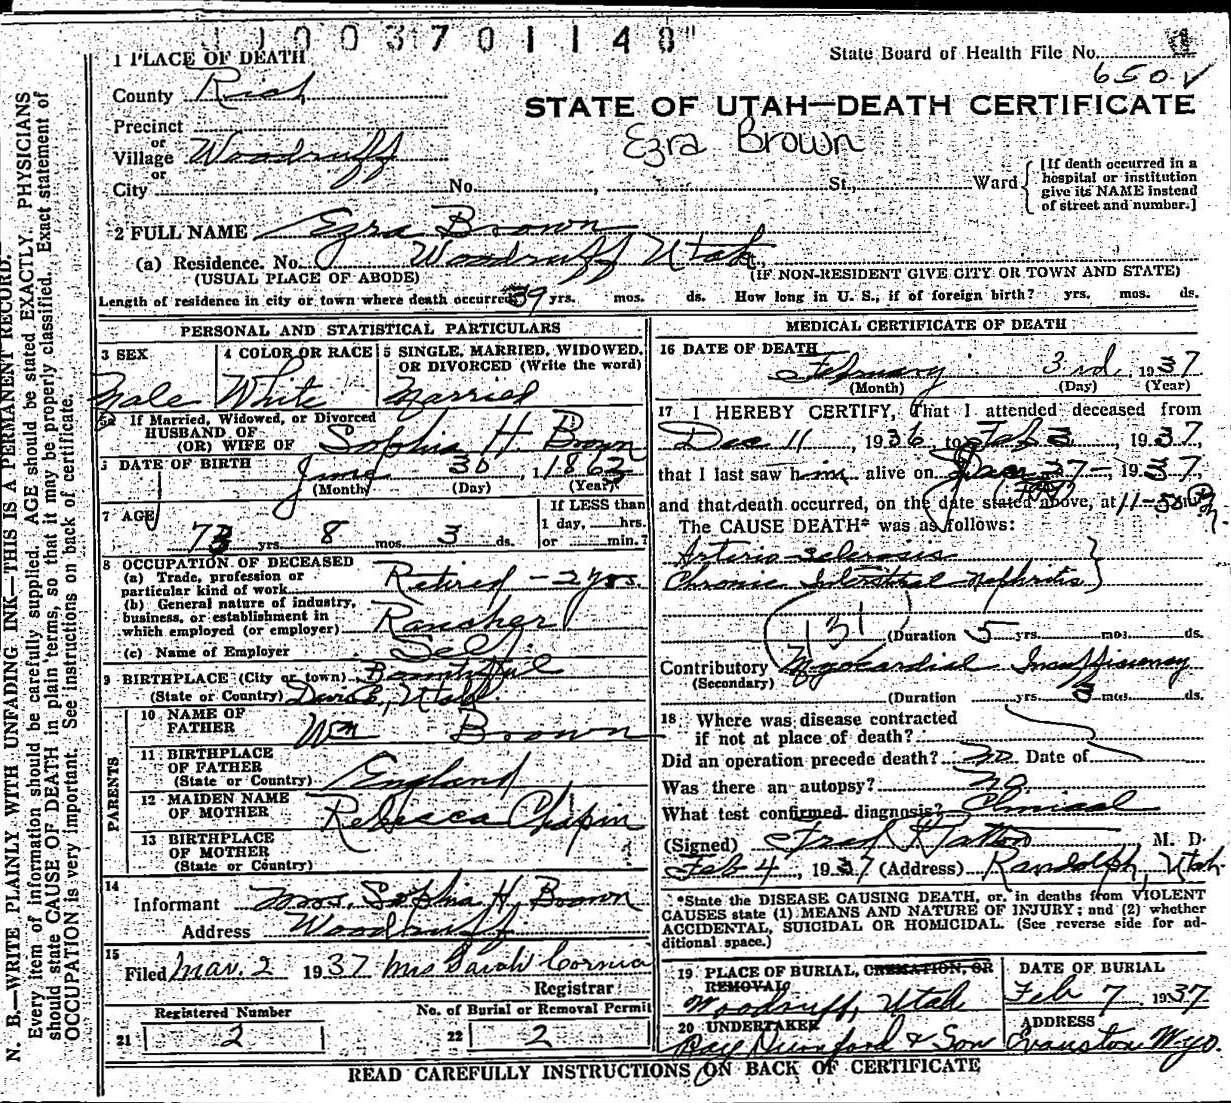 1003701148"
State Board of Health File No. 1
650 V
1 PLACE OF DEATH
County Rich
STATE OF UTAH—DEATH CERTIFICATE
Precinct
or
Village Woodruff
Ezra Brown
or
City No. , St., Ward
[If death occurred in a
hospital or institution
give its NAME instead
of street and number.]
2 FULL NAME Ezra Brown
(a) Residence. No. Woodruff Utah
(USUAL PLACE OF ABODE) (IF NON-RESIDENT GIVE CITY OR TOWN AND STATE)
Length of residence in city or town where death occurred 39 yrs. mos. ds. How long in U. S., if of foreign birth? yrs. mos. ds.
PERSONAL AND STATISTICAL PARTICULARS
3 SEX
Male
4 COLOR OR RACE
White
5 SINGLE, MARRIED, WIDOWED,
OR DIVORCED (Write the word)
Married
5a If Married, Widowed, or Divorced
HUSBAND OF
(OR) WIFE OF Sophia H. Brown
6 DATE OF BIRTH 30 , 1863
(Month) (Day) (Year)
7 AGE
73 yrs. 8 mos. 3 ds.
If LESS than
1 day, hrs.
or min.?
8 OCCUPATION OF DECEASED
(a) Trade, profession or
particular kind of work Retired - 2 yrs.
(b) General nature of industry,
business, or establishment in
which employed (or employer) Rancher
(c) Name of Employer Self
9 BIRTHPLACE (City or town) Bountiful
(State or Country) Davis, Utah
PARENTS
10 NAME OF
FATHER Wm Brown
11 BIRTHPLACE
OF FATHER
(State or Country) England
12 MAIDEN NAME
OF MOTHER Rebecca Chapin
13 BIRTHPLACE
OF MOTHER
(State or Country)
14
Informant Mrs. Sophia H. Brown
Address Woodruff
15
Filed Mar. 2 1937 Mrs Sarah Cornia
Registrar
Registered Number
21 2
No. of Burial or Removal Permit
22 2
MEDICAL CERTIFICATE OF DEATH
16 DATE OF DEATH
February 3rd, 1937
(Month) (Day) (Year)
17 I HEREBY CERTIFY, That I attended deceased from
Dec 11, 1936, to Feb 3, 1937,
that I last saw him alive on 27— 1937
and that death occurred, on the date stated above, at 11-50 m Pm
The CAUSE DEATH* was as follows:
Arterio sclerosis
Chronic Interstitial Nephritis
131
(Duration 5 yrs. mos. ds.
Contributory Myokardial Insufficiency
(Secondary)
(Duration yrs. 3 mos. ds.
18 Where was disease contracted
if not at place of death?
Did an operation precede death? no Date of
Was there an autopsy? no
What test confirmed diagnosis? Clinical
(Signed) M. D.
Feb 4, 1937 (Address) Randolph, Utah
*State the DISEASE CAUSING DEATH, or in deaths from VIOLENT
CAUSES state (1) MEANS AND NATURE OF INJURY; and (2) whether
ACCIDENTAL, SUICIDAL OR HOMICIDAL. (See reverse side for ad-
ditional space.)
19 PLACE OF BURIAL, CREMATION, OR
REMOVAL
Woodruff, Utah
DATE OF BURIAL
Feb 7 1937
20 UNDERTAKER
& Son
ADDRESS
Evanston Wyo.
READ CAREFULLY INSTRUCTIONS ON BACK OF CERTIFICATE
N. B.—WRITE PLAINLY WITH UNFADING INK—THIS IS A PERMANENT RECORD.
Every item of information should be carefully supplied. AGE should be stated EXACTLY. PHYSICIANS
should state CAUSE OF DEATH in plain terms, so that it may be properly classified. Exact statement of
OCCUPATION is very important. See instructions on back of certificate.